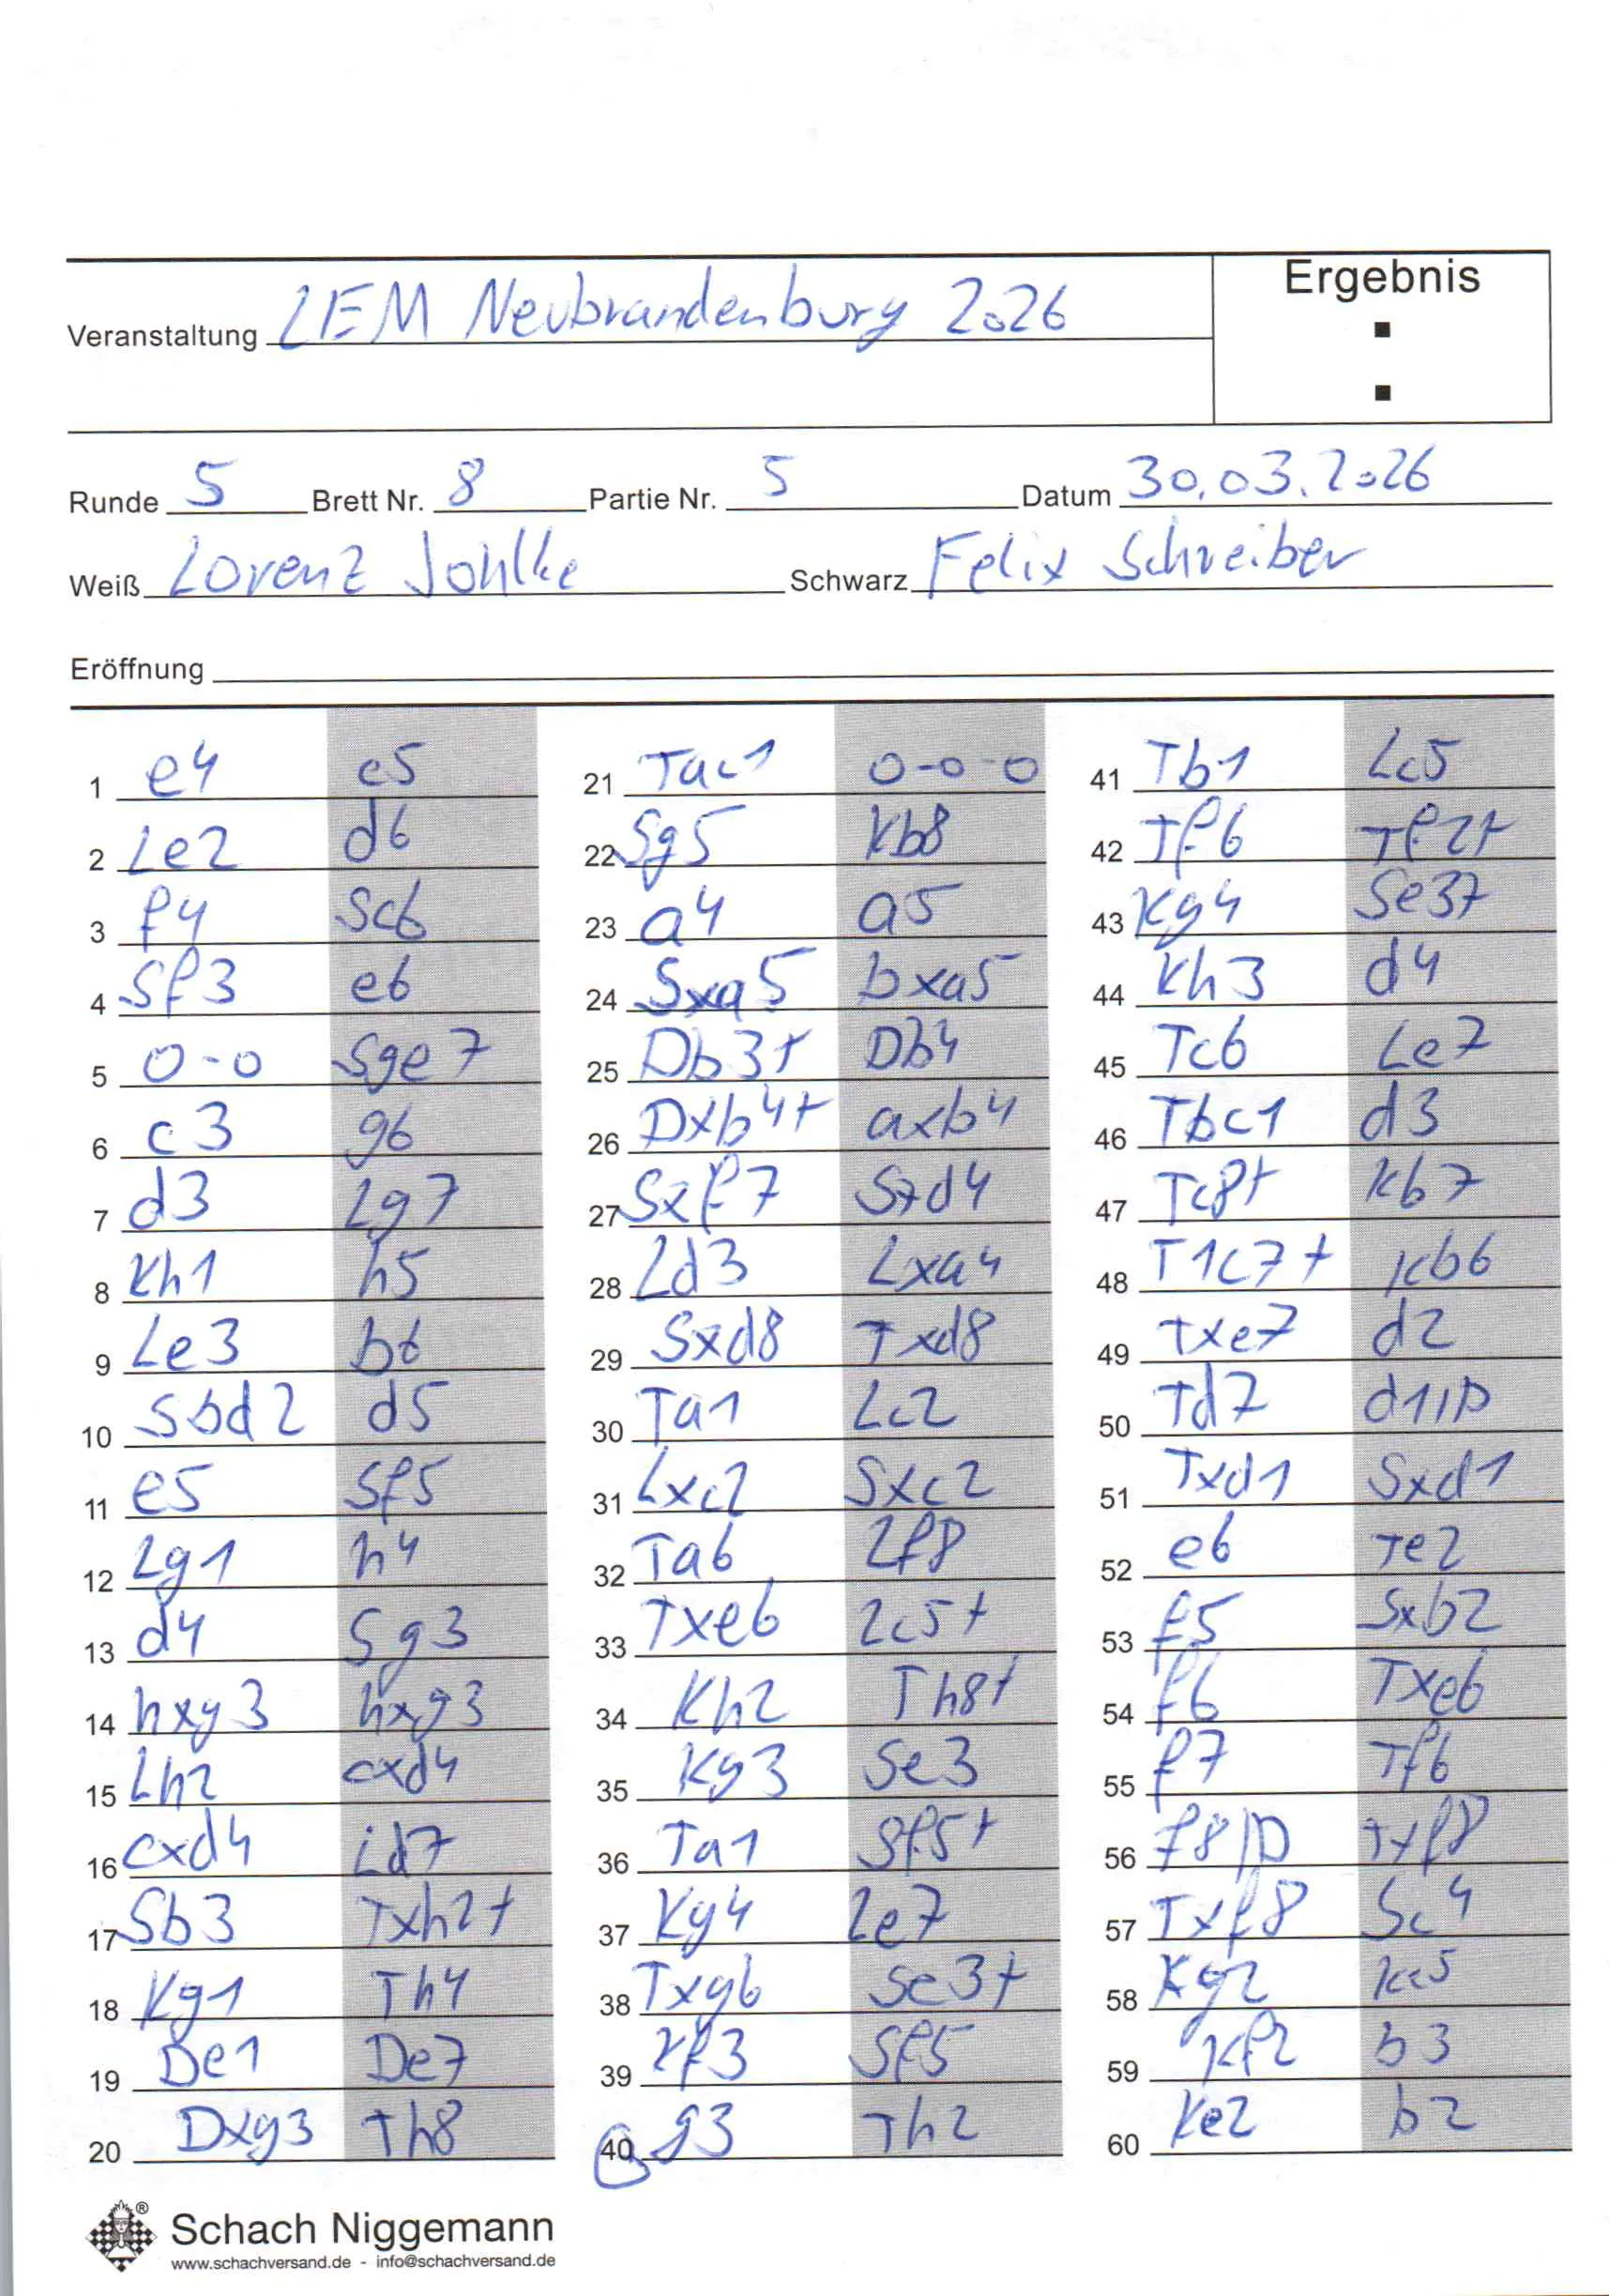 Ergebnis
:
Veranstaltung LEM Neubrandenburg 2026
Runde 5 Brett Nr. 8 Partie Nr. 5 Datum 30.03.2026
Weiß Lorenz Johlke Schwarz Felix Schreiber
Eröffnung
1 e4 c5
2 Le2 d6
3 f4 Sc6
4 Sf3 e6
5 0-0 Sge7
6 c3 g6
7 d3 Lg7
8 Kh1 h5
9 Le3 b6
10 Sbd2 d5
11 e5 Sf5
12 Lg1 h4
13 d4 Sg3
14 hxg3 hxg3
15 Lh2 cxd4
16 cxd4 Ld7
17 Sb3 Txh2+
18 Kg1 Th4
19 De1 De7
20 Dxg3 Th8
21 Tac1 0-0-0
22 Sg5 Kb8
23 a4 a5
24 Sxa5 bxa5
25 Db3+ Db4
26 Dxb4+ axb4
27 Sxf7 Sxd4
28 Ld3 Lxa4
29 Sxd8 Txd8
30 Ta1 Lc2
31 Lxc2 Sxc2
32 Ta6 Lf8
33 Txe6 Lc5+
34 Kh2 Th8+
35 Kg3 Se3
36 Ta1 Sf5+
37 Kg4 Le7
38 Txg6 Se3+
39 Kf3 Sf5
40 g3 Th2
41 Tb1 Lc5
42 Tf6 Tf2+
43 Kg4 Se3+
44 Kh3 d4
45 Tc6 Le7
46 Tbc1 d3
47 Tc8+ Kb7
48 T1c7+ Kb6
49 Txe7 d2
50 Td7 d1/D
51 Txd1 Sxd1
52 e6 Te2
53 f5 Sxb2
54 f6 Txe6
55 f7 Tf6
56 f8/D Txf8
57 Txf8 Sc4
58 Kg2 Kc5
59 Kf2 b3
60 Ke2 b2
®
Schach Niggemann
www.schachversand.de - info@schachversand.de